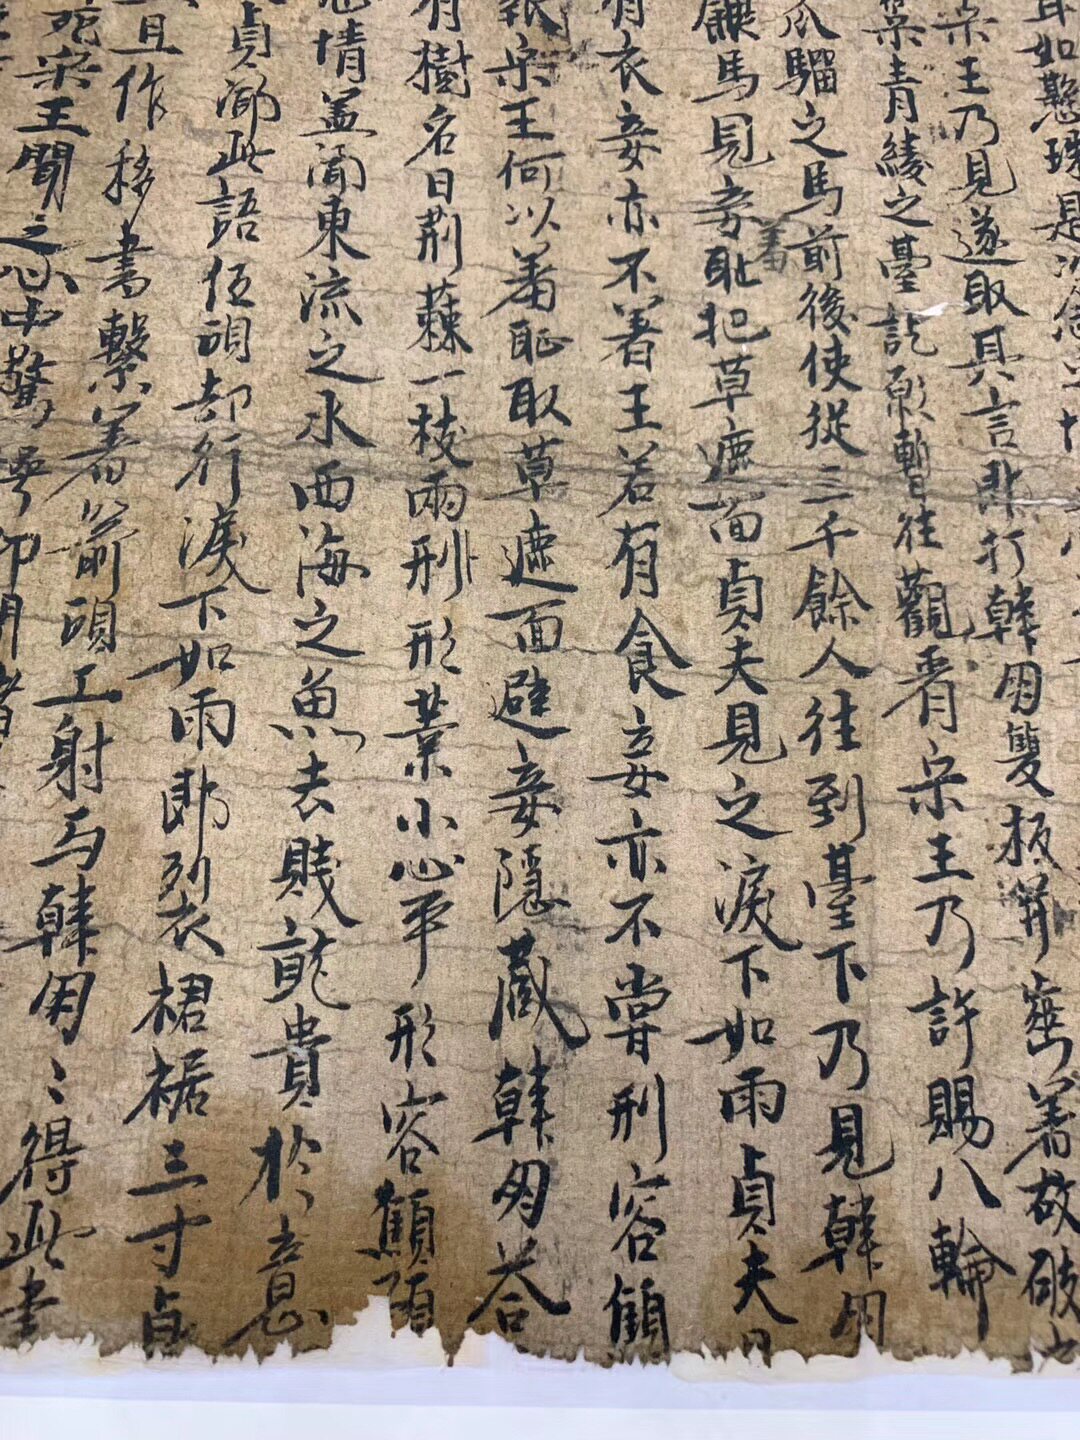 耳如懸珠是
宋王乃見遂取其言即打韓朋雙板齒并着故破
築青綾之臺訖願暫往觀看宋王乃許賜八輪
爪騮之馬前後使從三千餘人往到臺下乃見韓朋
飤馬見妾羞耻把草遮面貞夫見之淚下如雨貞夫
有衣妾亦不著王若有食妾亦不嘗刑容顦
報宋王何以羞耻取草遮面避妾隱藏韓朋答
有樹名曰荊蕀一枝兩刑形葉小心平形容顦顇
情盖聞東流之水西海之魚去賤就貴於意
貞節此語伍頭却行淚下如雨即裂裙裾三寸
且作移書繫著箭頭工射与韓朋〻得此書
宋王聞之心中驚愕即